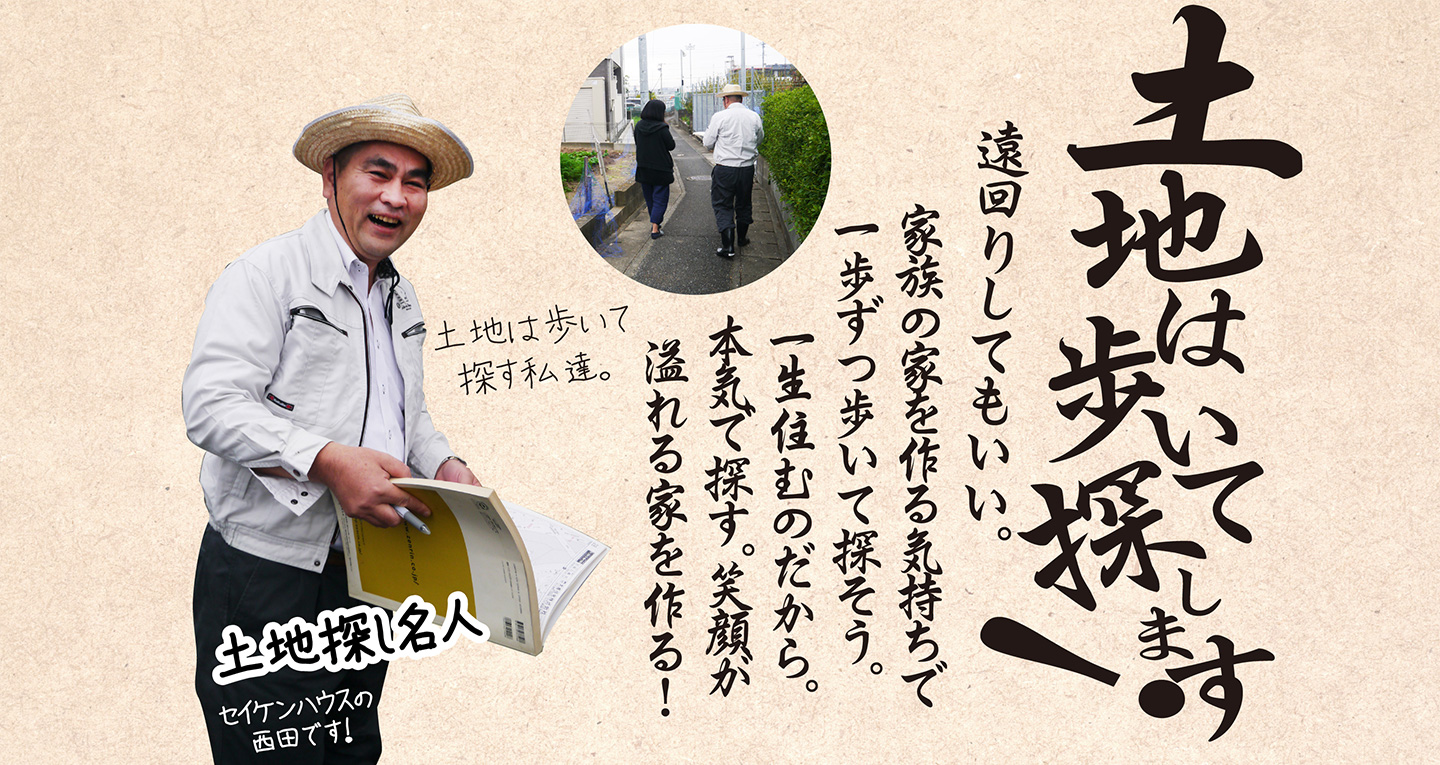 土地は
歩いて
探します!
遠回りしてもいい。
家族の家を作る気持ちで
一歩ずつ歩いて探そう。
一生住むのだから。
本気で探す。笑顔が
溢れる家を作る!
土地は歩いて
探す私達。
土地探し名人
セイケンハウスの
西田です!